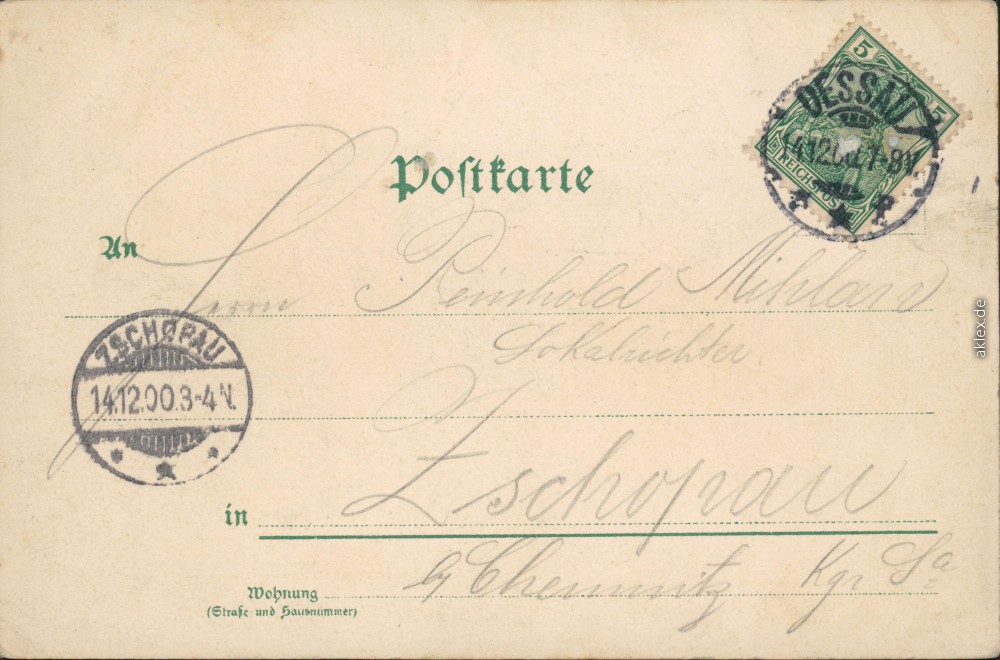 5
5
REICHSPOST
DESSAU
14.12.00.7-8V.
Postkarte
An
Herrn Reinhold Mihlan
Lokalrichter
ZSCHOPAU
14.12.00.3-4N.
in Zschopau
b/ Chemnitz Kgr Sa
Wohnung
(Straße und Hausnummer)
aklex.de